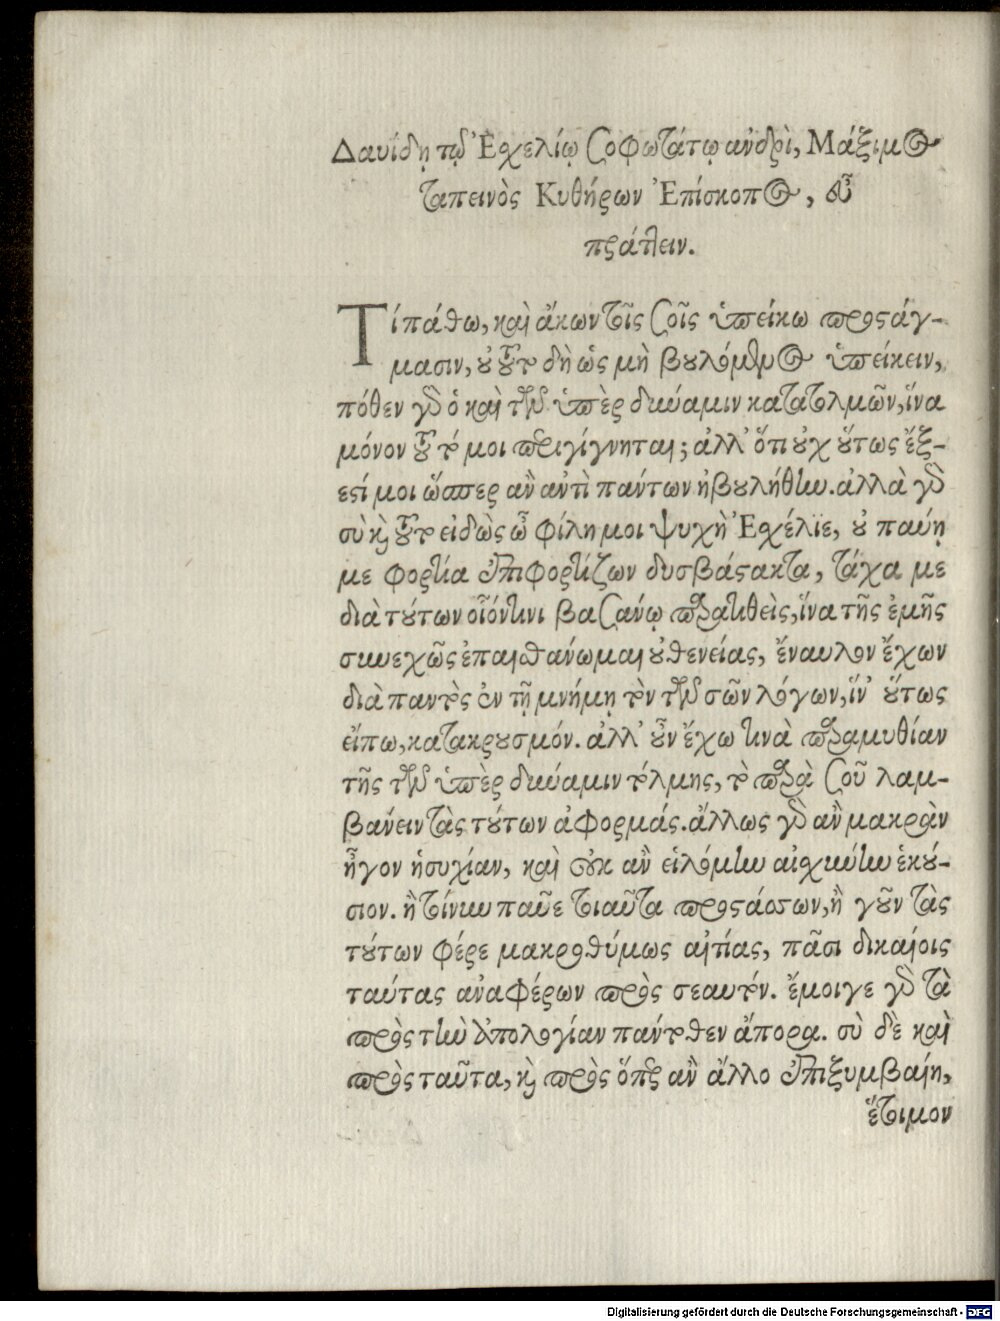 Δαυίδῃ τῷ Ἐσχελίῳ σοφωτάτῳ ἀνδρὶ, Μάξιμος
ταπεινὸς Κυθήρων Ἐπίσκοπος, εὖ
πράττειν.
Τί πάθω, καὶ ἄκων τοῖς σοῖς ὑπείκω προστάγ-
μασιν, οὐ τοῦτο δὴ ὡς μὴ βουλόμενος ὑπείκειν,
πόθεν γὰρ ὁ καὶ τῶν ὑπὲρ δύναμιν κατατολμῶν, ἵνα
μόνον τοῦτό μοι περιγίγνηται; ἀλλ' ὅτι οὐχ οὕτως ἔξ-
εστί μοι ὥσπερ ἂν ἀντὶ πάντων ἠβουλήθην. ἀλλὰ γὰρ
σὺ καὶ τοῦτο εἰδὼς ὦ φίλη μοι ψυχὴ Ἐσχέλιε, οὐ παύῃ
με φορτία ἐπιφορτίζων δυσβάστακτα, τάχα με
διὰ τούτων οἷόν τινι βασάνῳ παραταθεὶς, ἵνα τῆς ἐμῆς
συνεχῶς ἐπαισθάνωμαι οὐθενείας, ἔναυλον ἔχων
διὰ παντὸς ἐν τῇ μνήμῃ τὸν τῶν σῶν λόγων, ἵν' οὕτως
εἴπω, κατακρουσμόν. ἀλλ' οὖν ἔχω τινὰ παραμυθίαν
τῆς τῶν ὑπὲρ δύναμιν τόλμης, τὸ παρὰ σοῦ λαμ-
βάνειν τὰς τούτων ἀφορμάς. ἄλλως γὰρ ἂν μακρὰν
ἦγον ἡσυχίαν, καὶ οὐκ ἂν εἱλόμην αἰσχύνην ἑκού-
σιον. ἢ τοίνυν παῦε τοιαῦτα προστάσσων, ἢ γοῦν τὰς
τούτων φέρε μακροθύμως αἰτίας, πᾶσι δικαίοις
ταύτας ἀναφέρων πρὸς σεαυτόν. ἔμοιγε γὰρ τὰ
πρὸς τὴν ἀπολογίαν πάντοθεν ἄπορα. σὺ δὲ καὶ
πρὸς ταῦτα, καὶ πρὸς ὅπερ ἂν ἄλλο ἐπιξυμβαίη,
ἕτοιμον
Digitalisierung gefördert durch die Deutsche Forschungsgemeinschaft - DFG